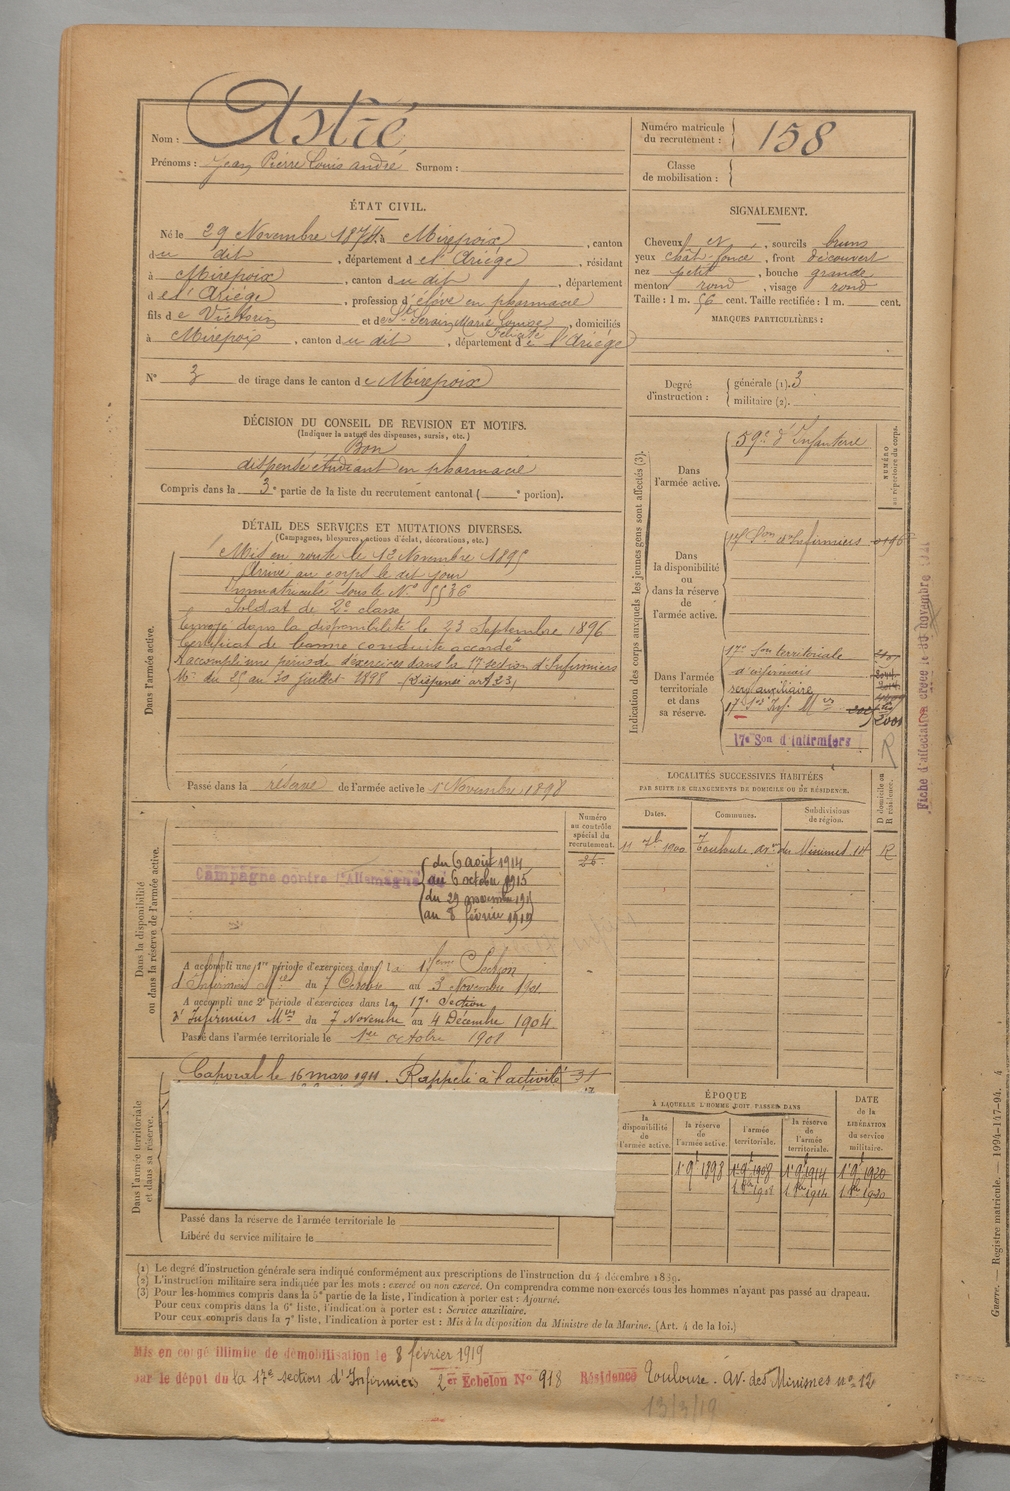 Nom : Astié
Prénoms : Jean Pierre Louis André Surnom :
Numéro matricule du recrutement : 158
Classe de mobilisation :
ÉTAT CIVIL.
Né le 29 Novembre 1874 à Mirepoix, canton
du dit, département de l'Ariège, résidant
à Mirepoix, canton du dit, département
de l'Ariège, profession d'élève en pharmacie
fils de Victorin et de Marie Louise, domiciliés
à Mirepoix, canton du dit, département de l'Ariège
N° 3 de tirage dans le canton de Mirepoix
SIGNALEMENT.
Cheveux et, sourcils bruns
yeux chât. foncé, front découvert
nez petit, bouche grande
menton rond, visage rond
Taille : 1 m. 56 cent. Taille rectifiée : 1 m. cent.
MARQUES PARTICULIÈRES :
Degré d'instruction : générale (1). 3
militaire (2).
DÉCISION DU CONSEIL DE REVISION ET MOTIFS.
(Indiquer la nature des dispenses, sursis, etc.)
Bon
dispensé étudiant en pharmacie
Compris dans la 3e partie de la liste du recrutement cantonal ( e portion).
DÉTAIL DES SERVICES ET MUTATIONS DIVERSES.
(Campagnes, blessures, actions d'éclat, décorations, etc.)
Dans l'armée active.
Mis en route le 13 Novembre 1895
Arrivé au corps le dit jour
Immatriculé sous le N° 5536
Soldat de 2e classe
Envoyé dans la disponibilité le 23 Septembre 1896
Certificat de bonne conduite accordé
A accompli une période d'exercices dans la 17 section d'Infirmiers
Mres du 25 au 30 Juillet 1898 (Dispensé art 23)
Passé dans la réserve de l'armée active le 1er Novembre 1898
Indication des corps auxquels les jeunes gens sont affectés (3).
NUMÉRO au répertoire du corps.
Dans l'armée active.
59e d'Infanterie
Dans la disponibilité ou dans la réserve de l'armée active.
17e Son d'Infirmiers
Dans l'armée territoriale et dans sa réserve.
17e Son territoriale
d'infirmiers
serv auxiliaire
17e Son Inf. Mres
2001
17e Son d'Infirmiers
R
Fiche d'affectation créée le 30 novembre
LOCALITÉS SUCCESSIVES HABITÉES
PAR SUITE DE CHANGEMENTS DE DOMICILE OU DE RÉSIDENCE.
Dates. Communes. Subdivisions de région. D domicile ou R résidence.
11 7b 1900 Toulouse av. des Minimes 14 R
Dans la disponibilité ou dans la réserve de l'armée active.
Numéro au contrôle spécial du recrutement.
Campagne contre l'Allemagne
du 6 août 1914
au 6 octobre 1915
du 29 novembre 1915
au 8 février 1919
A accompli une 1re période d'exercices dans la 17eme Section
d'Infirmiers Mres du 7 Octobre au 3 Novembre 1901
A accompli une 2e période d'exercices dans la 17e Section
d'Infirmiers Mres du 7 Novembre au 4 Décembre 1904
Passé dans l'armée territoriale le 1er octobre 1908
Dans l'armée territoriale et dans sa réserve.
Caporal le 16 mars 1911. Rappelé à l'activité
Passé dans la réserve de l'armée territoriale le
Libéré du service militaire le
ÉPOQUE
À LAQUELLE L'HOMME DOIT PASSER DANS
la disponibilité de l'armée active.
la réserve de l'armée active.
l'armée territoriale.
la réserve de l'armée territoriale.
DATE de la LIBÉRATION du service militaire.
1 9bre 1898 1 9bre 1908 1 9bre 1914 1 9bre 1920
1 8bre 1908 1 8bre 1914 1 8bre 1920
(1) Le degré d'instruction générale sera indiqué conformément aux prescriptions de l'instruction du 4 décembre 1889.
(2) L'instruction militaire sera indiquée par les mots : exercé ou non exercé. On comprendra comme non exercés tous les hommes n'ayant pas passé au drapeau.
(3) Pour les hommes compris dans la 5e partie de la liste, l'indication à porter est : Ajourné.
Pour ceux compris dans la 6e liste, l'indication à porter est : Service auxiliaire.
Pour ceux compris dans la 7e liste, l'indication à porter est : Mis à la disposition du Ministre de la Marine. (Art. 4 de la loi.)
Mis en congé illimité de démobilisation le 8 février 1919
par le dépôt du la 17e section d'Infirmiers 2er Echelon N° 918 Résidence Toulouse. av. des Minimes no 12
13/3/19
Guerre. — Registre matricule. — 1994-147-94.